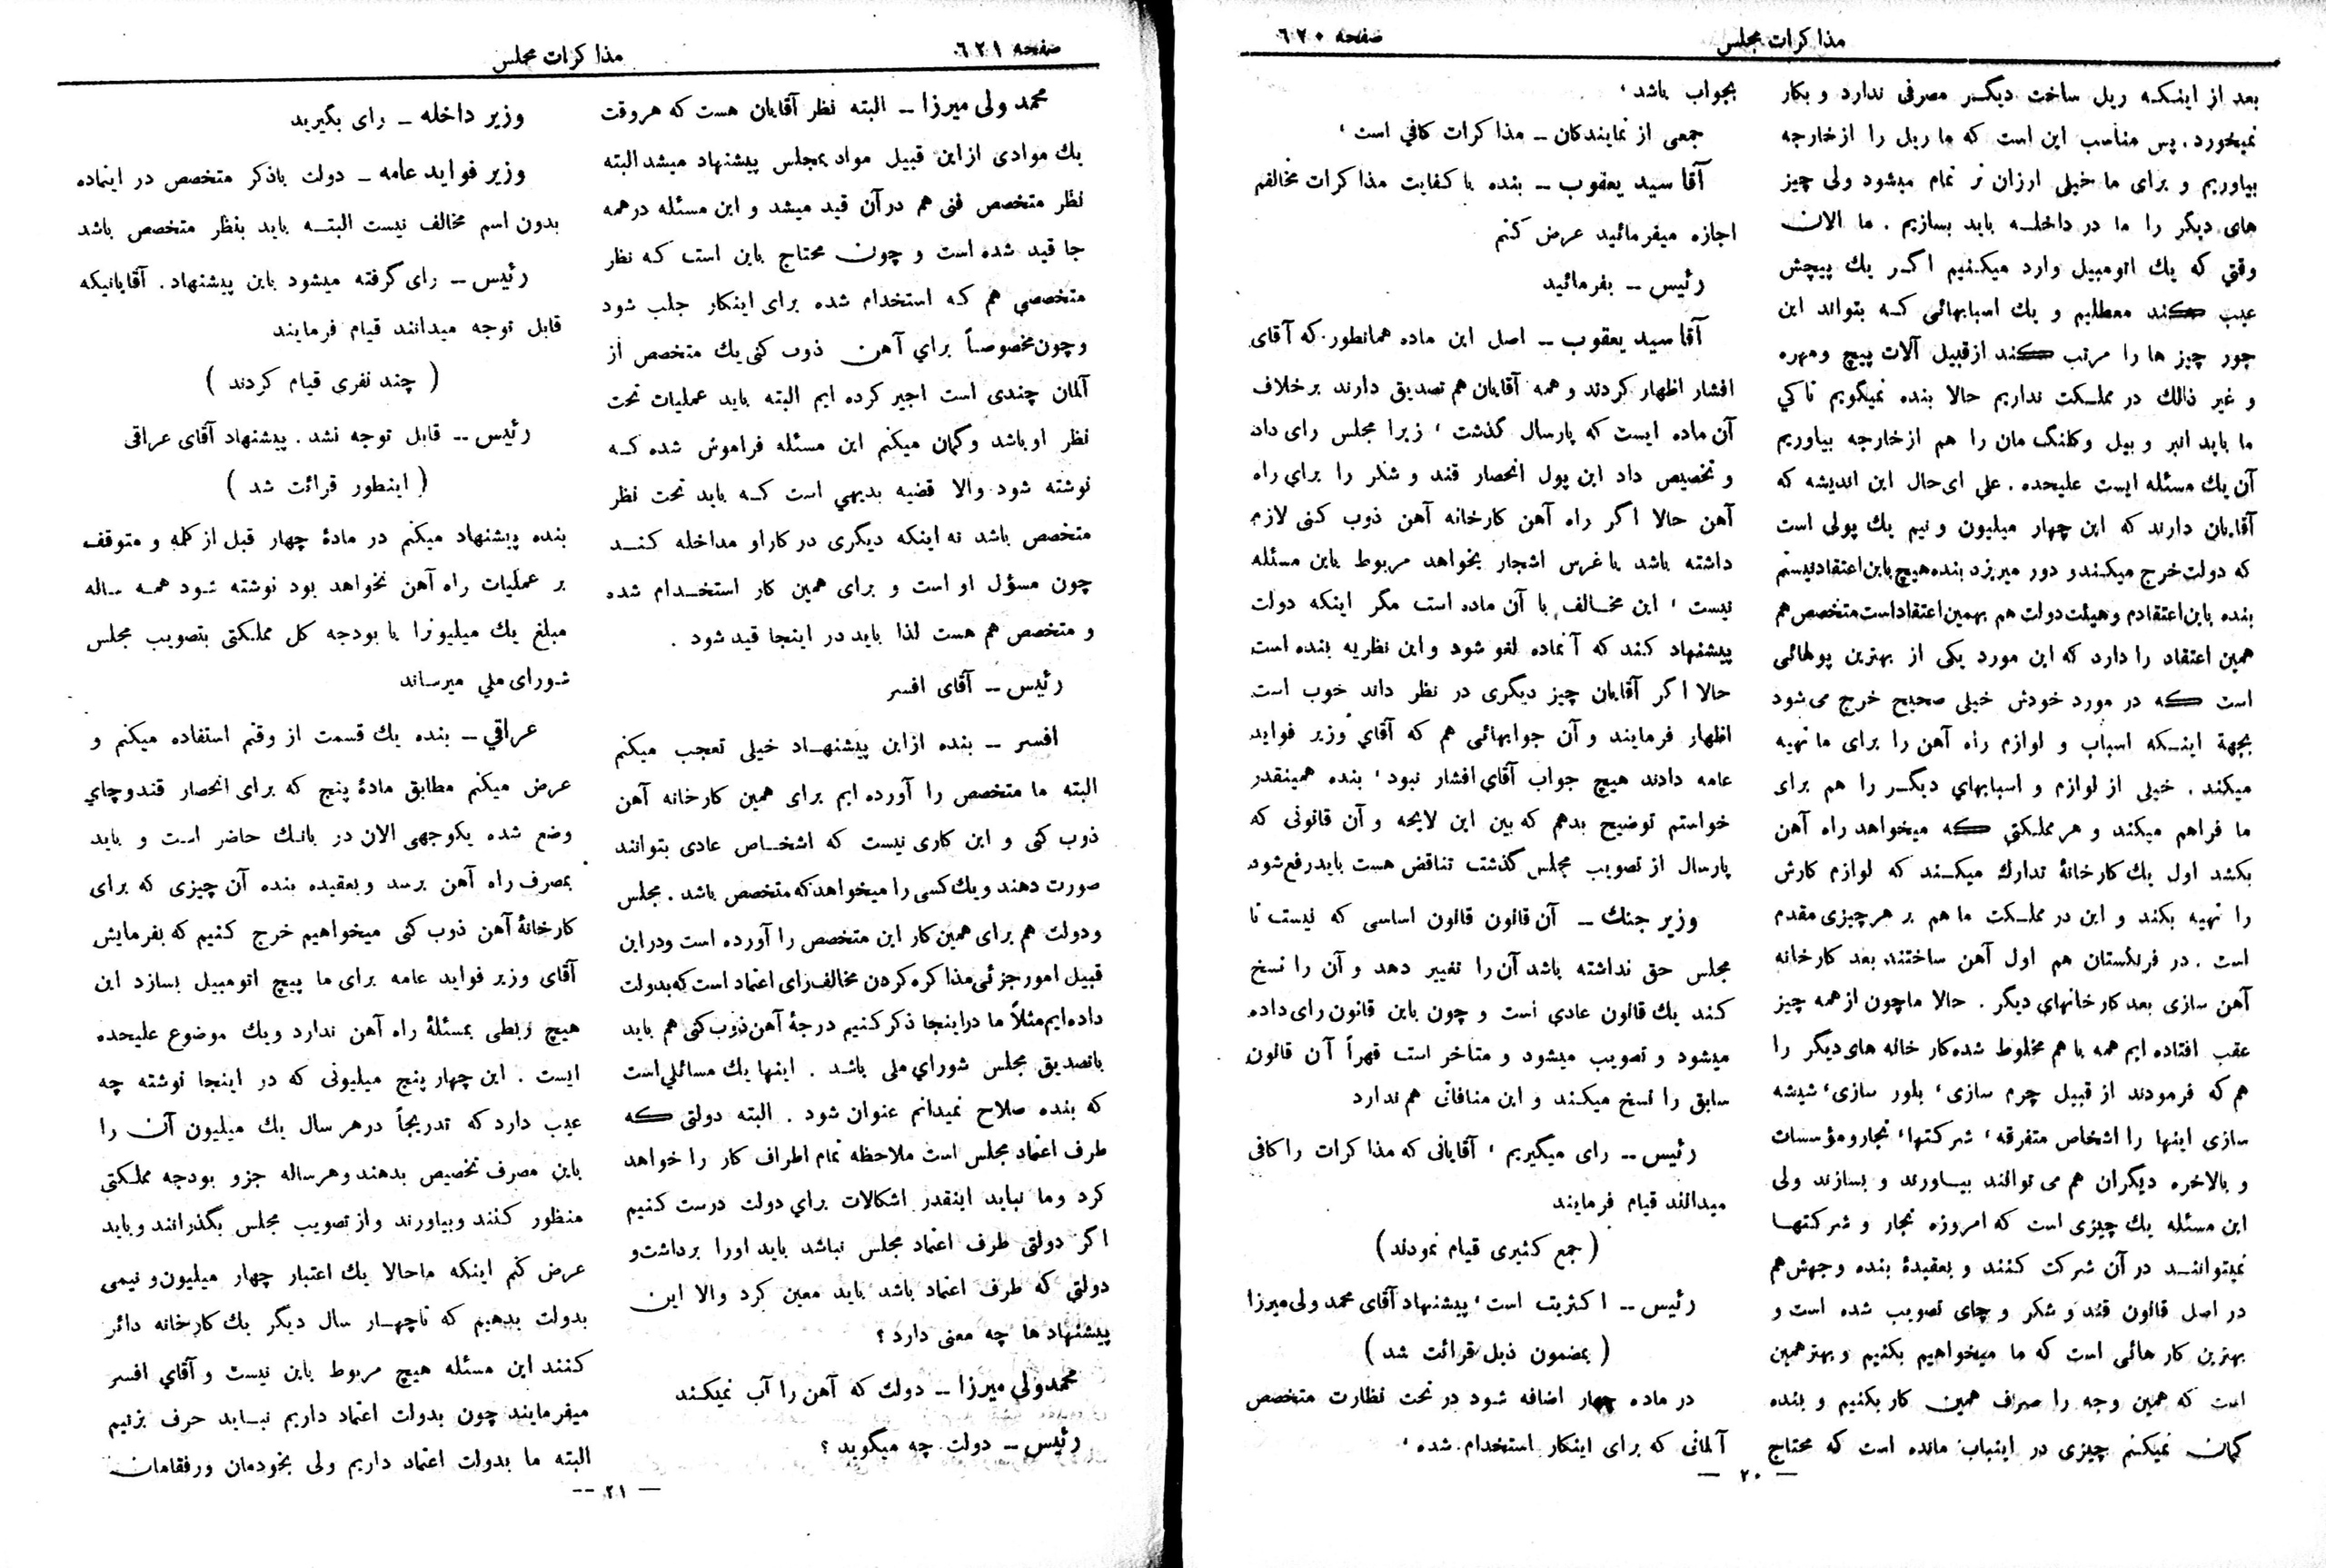 صفحه ٦٢٠
مذاکرات مجلس
بعد از اینـکـه ریل ساخت دیگـر مصرفی ندارد و بکار
نمیخورد. پس مناسب این است که ما ریل را از خارجه
بیاوریم و برای ما خیلی ارزان تر تمام میشود ولی چیز
های دیگر را ما در داخلـه باید بسازیم . ما الان
وقتی که یك اتومبیل وارد میکـنیم اگـر یك پیچش
عیب کند معطلیم و یك اسبابهائی کـه بتواند این
جور چیز ها را مرتب کند از قبیل آلات پیچ و مهره
و غیر ذالك در مملـکت نداریم حالا بنده نمیگویم تا کي
ما باید انبر و بیل و کلنگ مان را هم از خارجه بیاوریم
آن یك مسئله ایست علیحده . علي ای حال این اندیشه که
آقایان دارند که این چهار میلیون و نیم یك پولی است
که دولت خرج میکـند و دور میریزد بنده هیچ باین اعتقاد نیستم
بنده باین اعتقادم و هیئت دولت هم بهمین اعتقاد است متخصص هم
همین اعتقاد را دارد که این مورد یکی از بهترین پولهائی
است که در مورد خودش خیلی صحیح خرج می شود
بجهة اینـکه اسباب و لوازم راه آهن را برای ما تهیه
میکند . خیلی از لوازم و اسبابهاي دیگـر را هم برای
ما فراهم میکند و هر مملـکتي که میخواهد راه آهن
بکشد اول یك کارخانۀ تدارك میکـند که لوازم کارش
را تهیه بکند و این در مملـکت ما هم بر هر چیزی مقدم
است . در فرنگستان هم اول آهن ساختند بعد کارخانه
آهن سازی بعد کارخانهاي دیگر . حالا ما چون از همه چیز
عقب افتاده ایم همه با هم مخلوط شده کار خانه های دیگر را
هم که فرمودند از قبیل چرم سازی ، بلور سازی ، شیشه
سازی اینها را اشخاص متفرقه ، شرکتها ، تجار و مؤسسات
و بالاخره دیگران هم می توانند بیـاورند و بسازند ولی
این مسئله یك چیزی است که امروزه تجار و شرکتهـا
نمیتواننـد در آن شرکت کنند و بعقیدۀ بنده وجهش هم
در اصل قانون قند و شکر و چای تصویب شده است و
بهترین کار هائی است که ما میخواهیم بکنیم و بهتر همین
است که همین وجه را صرف همین کار بکنیم و بنده
گمان نمیکنم چیزی در اینباب مانده است که محتاج
بجواب باشد ،
جمعی از نمایندگان ــ مذاکرات کافي است ،
آقا سید یعقوب ــ بنده با کفایت مذاکرات مخالفم
اجازه میفرمائید عرض کنم
رئیس ــ بفرمائید
آقا سید یعقوب ــ اصل این ماده همانطور که آقای
افشار اظهار کردند و همه آقایان هم تصدیق دارند بر خلاف
آن ماده ایست که پارسال گذشت ، زیرا مجلس رای داد
و تخصیص داد این پول انحصار قند و شکر را برای راه
آهن حالا اگر راه آهن کارخانه آهن ذوب کنی لازم
داشته باشد یا غرس اشجار بخواهد مربوط باین مسئله
نیست ، این مخـالف با آن ماده است مگر اینکه دولت
پیشنهاد کند که آنماده لغو شود و این نظریه بنده است
حالا اگر آقایان چیز دیگری در نظر داند خوب است
اظهار فرمایند و آن جوابهائی هم که آقاي وزیر فواید
عامه دادند هیچ جواب آقای افشار نبود ، بنده همینقدر
خواستم توضیح بدهم که بین این لایحه و آن قانونی که
پارسال از تصویب مجلس گذشت تناقض هست باید رفع شود
وزیر جنك ــ آن قانون قانون اساسی که نیست تا
مجلس حق نداشته باشد آن را تغییر دهد و آن را نسخ
کند یك قانون عادي است و چون باین قانون رای داده
میشود و تصویب میشود و متاخر است قهراً آن قانون
سابق را نسخ میکـند و این منافاتی هم ندارد
رئیس ــ رای میگیریم ، آقایانی که مذاکرات را کافی
میدانند قیام فرمایند
( جمع کثیری قیام نمودند )
رئیس ــ اکثریت است ، پیشنهاد آقای محمد ولی میرزا
( بمضمون ذیل قرائت شد )
در ماده چهار اضافه شود در تحت نظارت متخصص
آلمانی که برای اینکار استخدام شده ،
— ٢٠ —
صفحه ٦٢١
مذاکرات مجلس
محمد ولی میرزا ــ البته نظر آقایان هست که هر وقت
یك موادی از این قبیل مواد بمجلس پیشنهاد میشد البته
نظر متخصص فنی هم در آن قید میشد و این مسئله در همه
جا قید شده است و چون محتاج باین است کـه نظر
متخصصي هم کـه استخدام شده برای اینکار جلب شود
و چون مخصوصاً براي آهن ذوب کنی یك متخصص از
آلمان چندی است اجیر کرده ایم البته باید عملیات تحت
نظر او باشد و گمان میکنم این مسئله فراموش شده کـه
نوشته شود والا قضیه بدیهي است کـه باید تحت نظر
متخصص باشد نه اینکه دیگری در کار او مداخله کنـد
چون مسؤل او است و برای همین کار استخـدام شده
و متخصص هم هست لذا باید در اینجا قید شود .
رئیس ــ آقای افسر
افسر ــ بنده از این پیشنهـاد خیلی تعجب میکنم
البته ما متخصص را آورده ایم برای همین کارخانه آهن
ذوب کنی و این کاری نیست که اشخـاص عادی بتوانند
صورت دهند و یك کسی را میخواهد که متخصص باشد . مجلس
و دولت هم برای همین کار این متخصص را آورده است و در این
قبیل امور جزئی مذاکره کردن مخالف رای اعتماد است که بدولت
داده ایم مثلاً ما در اینجا ذکر کنیم درجۀ آهن ذوب کنی هم باید
با تصدیق مجلس شوراي ملی باشد . اینها یك مسائلی است
که بنده صلاح نمیدانم عنوان شود . البته دولتی که
طرف اعتماد مجلس است ملاحظه تمام اطراف کار را خواهد
کرد و ما نباید اینقدر اشکالات براي دولت درست کنیم
اگر دولتی طرف اعتماد مجلس نباشد باید او را برداشت و
دولتي که طرف اعتماد باشد باید معین کرد والا این
پیشنهاد ها چه معنی دارد ؟
محمد ولي میرزا ــ دولت که آهن را آب نمیکـند
رئیس ــ دولت چه میگوید ؟
وزیر داخله ــ رای بگیرید
وزیر فواید عامه ــ دولت باذکر متخصص در اینماده
بدون اسم مخالف نیست البتـه باید بنظر متخصص باشد
رئیس ــ رای گرفته میشود باین پیشنهاد . آقایانیکه
قابل توجه میدانند قیام فرمایند
( چند نفری قیام کردند )
رئیس ــ قابل توجه نشد . پیشنهاد آقای عراقی
( اینطور قرائت شد )
بنده پیشنهاد میکنم در مادۀ چهار قبل از کلمه و متوقف
بر عملیات راه آهن نخواهد بود نوشته شود همـه سـاله
مبلغ یك میلیونرا با بودجه کل مملـکتی بتصویب مجلس
شورای ملي میرسـاند
عراقي ــ بنده یك قسمت از وقتم استفاده میکنم و
عرض میکنم مطابق مادۀ پنج که برای انحصار قند و چاي
وضع شده یکوجهی الان در بانـك حاضر است و باید
بمصرف راه آهن برسد و بعقیده بنده آن چیزی که برای
کارخانۀ آهن ذوب کنی میخواهیم خرج کنیم که بفرمایش
آقای وزیر فواید عامه برای ما پیچ اتومبیل بسازد این
هیچ ربطی بمسئلۀ راه آهن ندارد و یك موضوع علیحده
ایست . این چهار پنج میلیونی که در اینجا نوشته چه
عیب دارد که تدریجاً در هر سال یك میلیون آن را
باین مصرف تخصیص بدهند و هر ساله جزو بودجه مملـکتی
منظور کـنند و بیاورند و از تصویب مجلس بگذرانند و باید
عرض کنم اینکه ما حالا یك اعتبار چهار میلیون و نیمی
بدولت بدهیم که تا چهـار سال دیگر یك کارخانه دائر
کـنند این مسئله هیچ مربوط باین نیست و آقاي افسر
میفرمایند چون بدولت اعتماد داریم نبـاید حرف بزنیم
البته ما بدولت اعتماد داریم ولی بخودمان و رفقامان
— ٢١ --